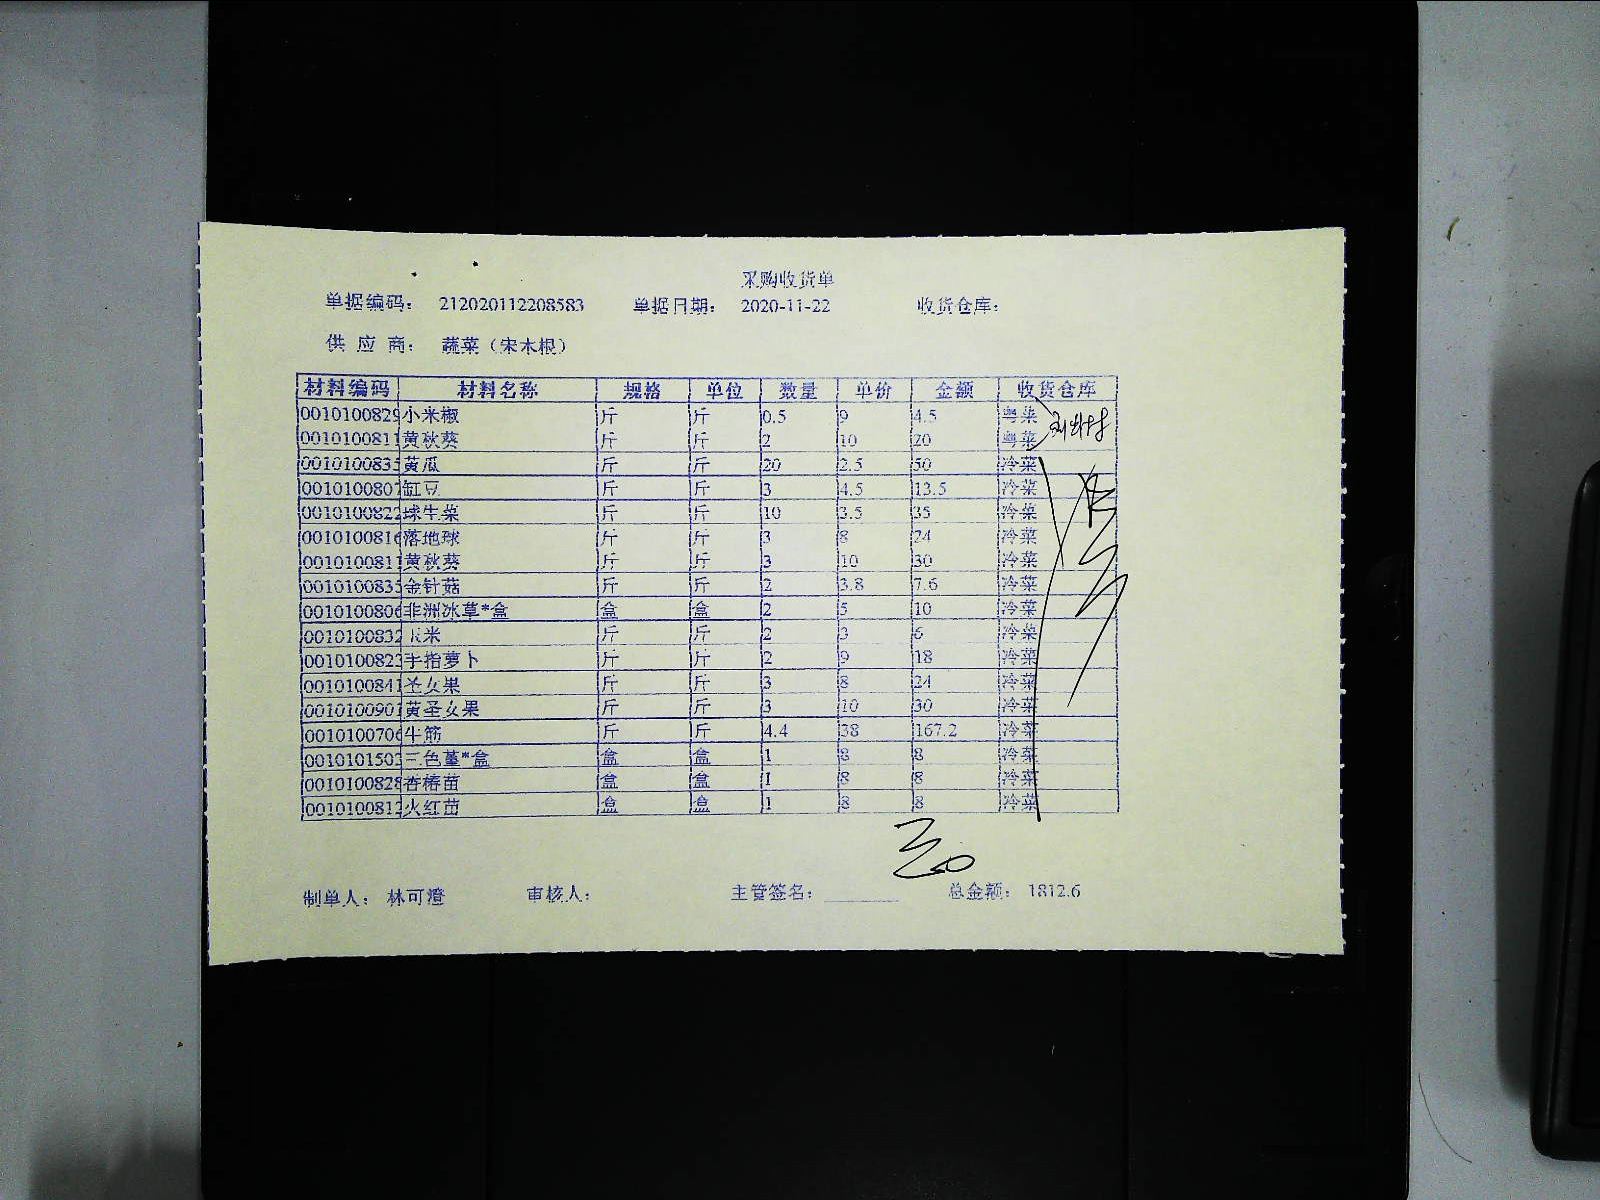 采购收货单
单据编码： 212020112208583 单据日期： 2020-11-22 收货仓库：
供 应 商： 蔬菜（宋木根）
材料编码 材料名称 规格 单位 数量 单价 金额 收货仓库
0010100829 小米椒 斤 斤 0.5 9 4.5 粤菜
0010100811 黄秋葵 斤 斤 2 10 20 粤菜
0010100835 黄瓜 斤 斤 20 2.5 50 冷菜
0010100807 缸豆 斤 斤 3 4.5 13.5 冷菜
0010100822 球生菜 斤 斤 10 3.5 35 冷菜
0010100816 落地球 斤 斤 3 8 24 冷菜
0010100811 黄秋葵 斤 斤 3 10 30 冷菜
0010100835 金针菇 斤 斤 2 3.8 7.6 冷菜
0010100806 非洲冰草*盒 盒 盒 2 5 10 冷菜
0010100832 米 斤 斤 2 3 6 冷菜
0010100823 手指萝卜 斤 斤 2 9 18 冷菜
0010100841 圣女果 斤 斤 3 8 24 冷菜
0010100901 黄圣女果 斤 斤 3 10 30 冷菜
0010100706 牛筋 斤 斤 4.4 38 167.2 冷菜
0010101503 三色堇*盒 盒 盒 1 8 8 冷菜
0010100828 香椿苗 盒 盒 1 8 8 冷菜
0010100812 火红苗 盒 盒 1 8 8 冷菜
制单人： 林可澄 审核人： 主管签名： 总金额： 1812.6